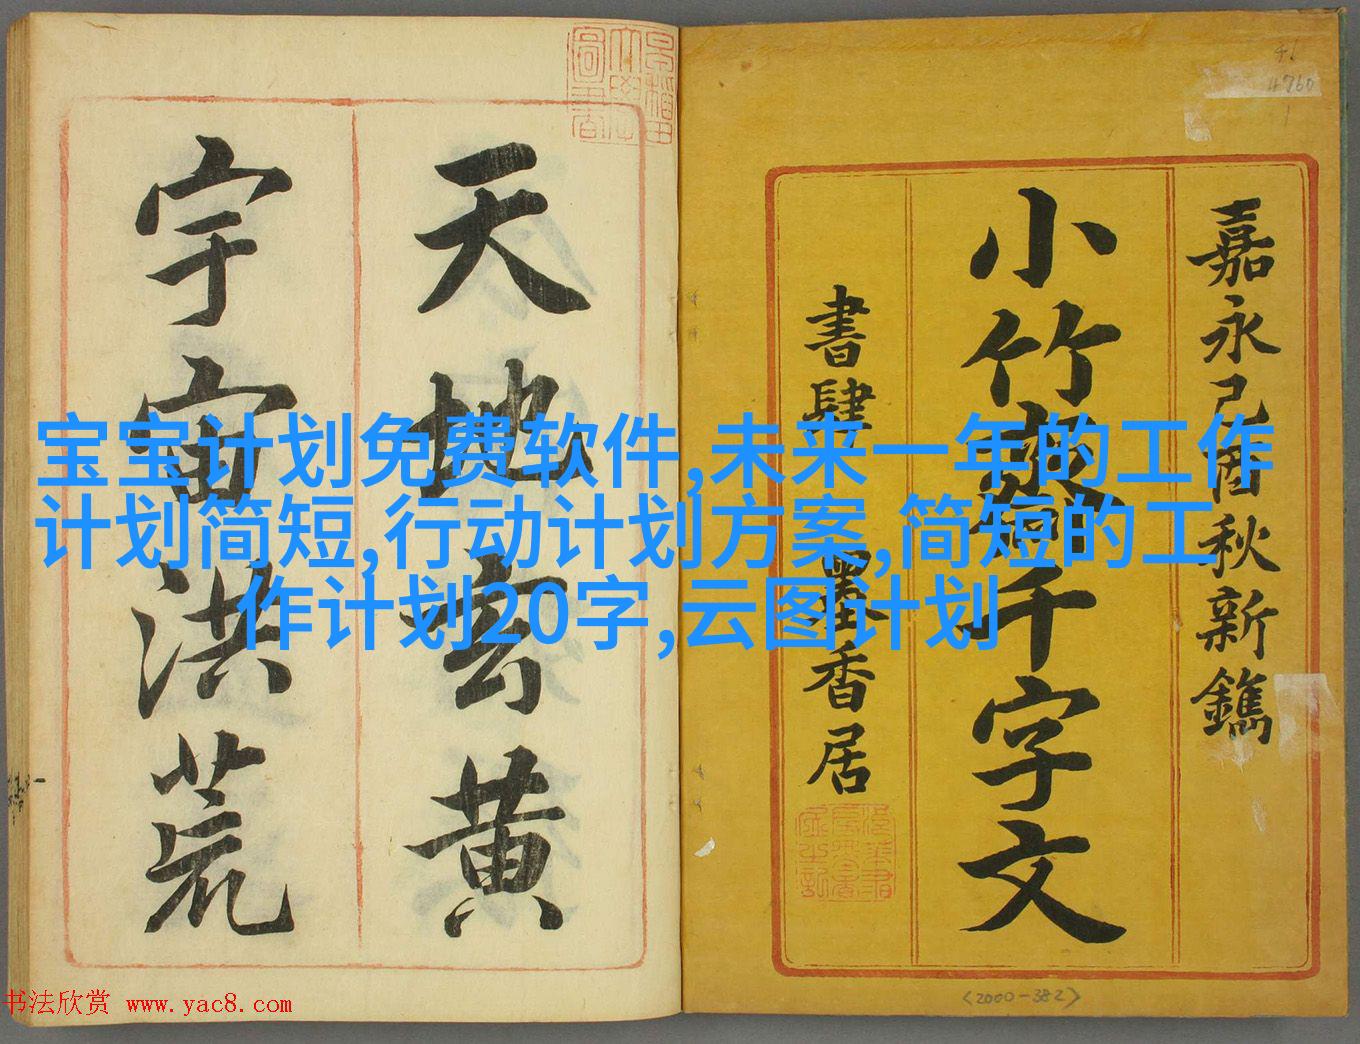 嘉永己酉秋新鐫
小竹齋千字文
書肆 墨香居
天地玄黄
宇宙洪荒
宝宝计划免费软件,未来一年的工作
计划简短,行动计划方案,简短的工
作计划20字,云图计划
4760
<2000-382>
书法欣赏 www.yac8.com